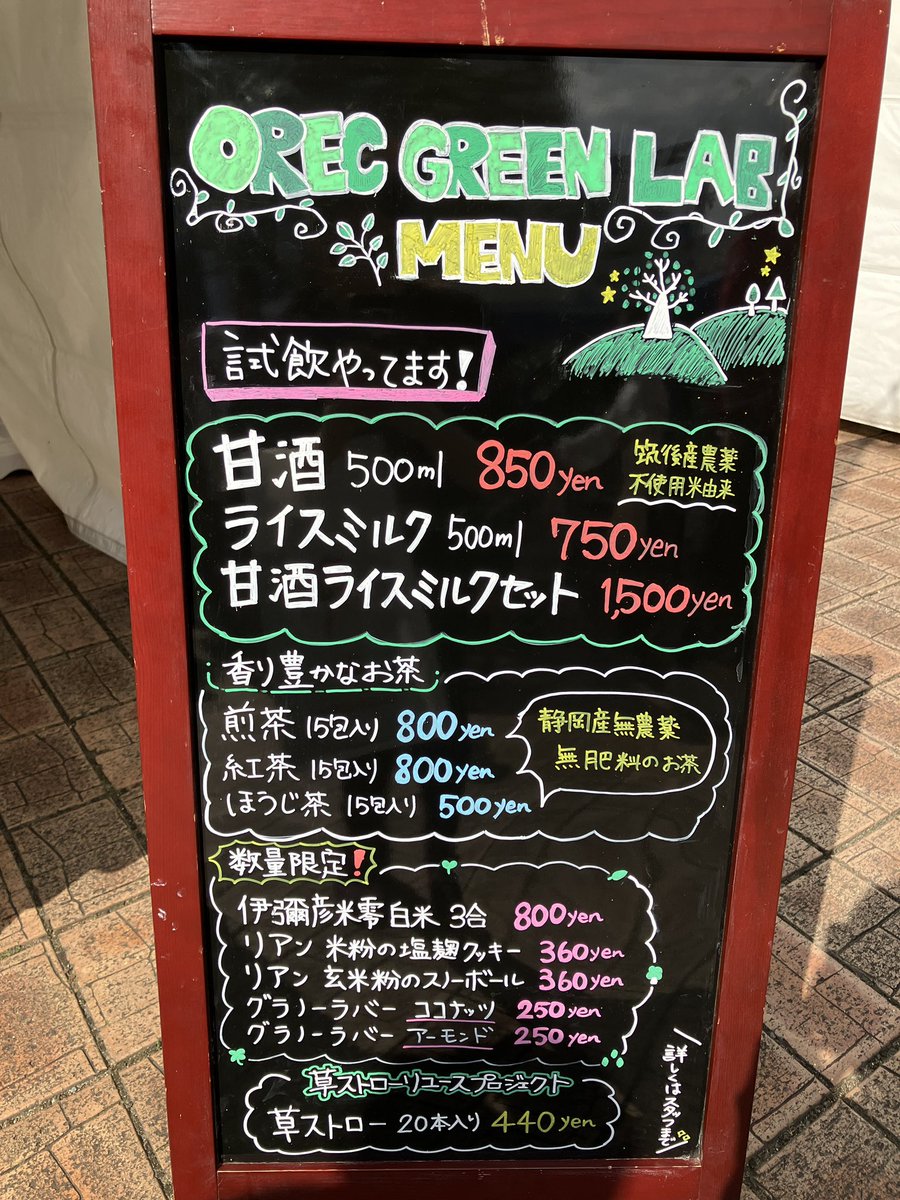 OREC GREEN LAB
MENU
試飲やってます!
甘酒 500ml 850yen
筑後産農薬
不使用米由来
ライスミルク 500ml 750yen
甘酒ライスミルクセット 1,500yen
香り豊かなお茶
煎茶 15包入り 800yen
紅茶 15包入り 800yen
ほうじ茶 15包入り 500yen
静岡産無農薬
無肥料のお茶
数量限定!
伊彌彦米零白米 3合 800yen
リアン 米粉の塩麹クッキー 360yen
リアン 玄米粉のスノーボール 360yen
グラノーラバー ココナッツ 250yen
グラノーラバー アーモンド 250yen
草ストローリユースプロジェクト
草ストロー 20本入り 440yen
詳しくはスタッフまで